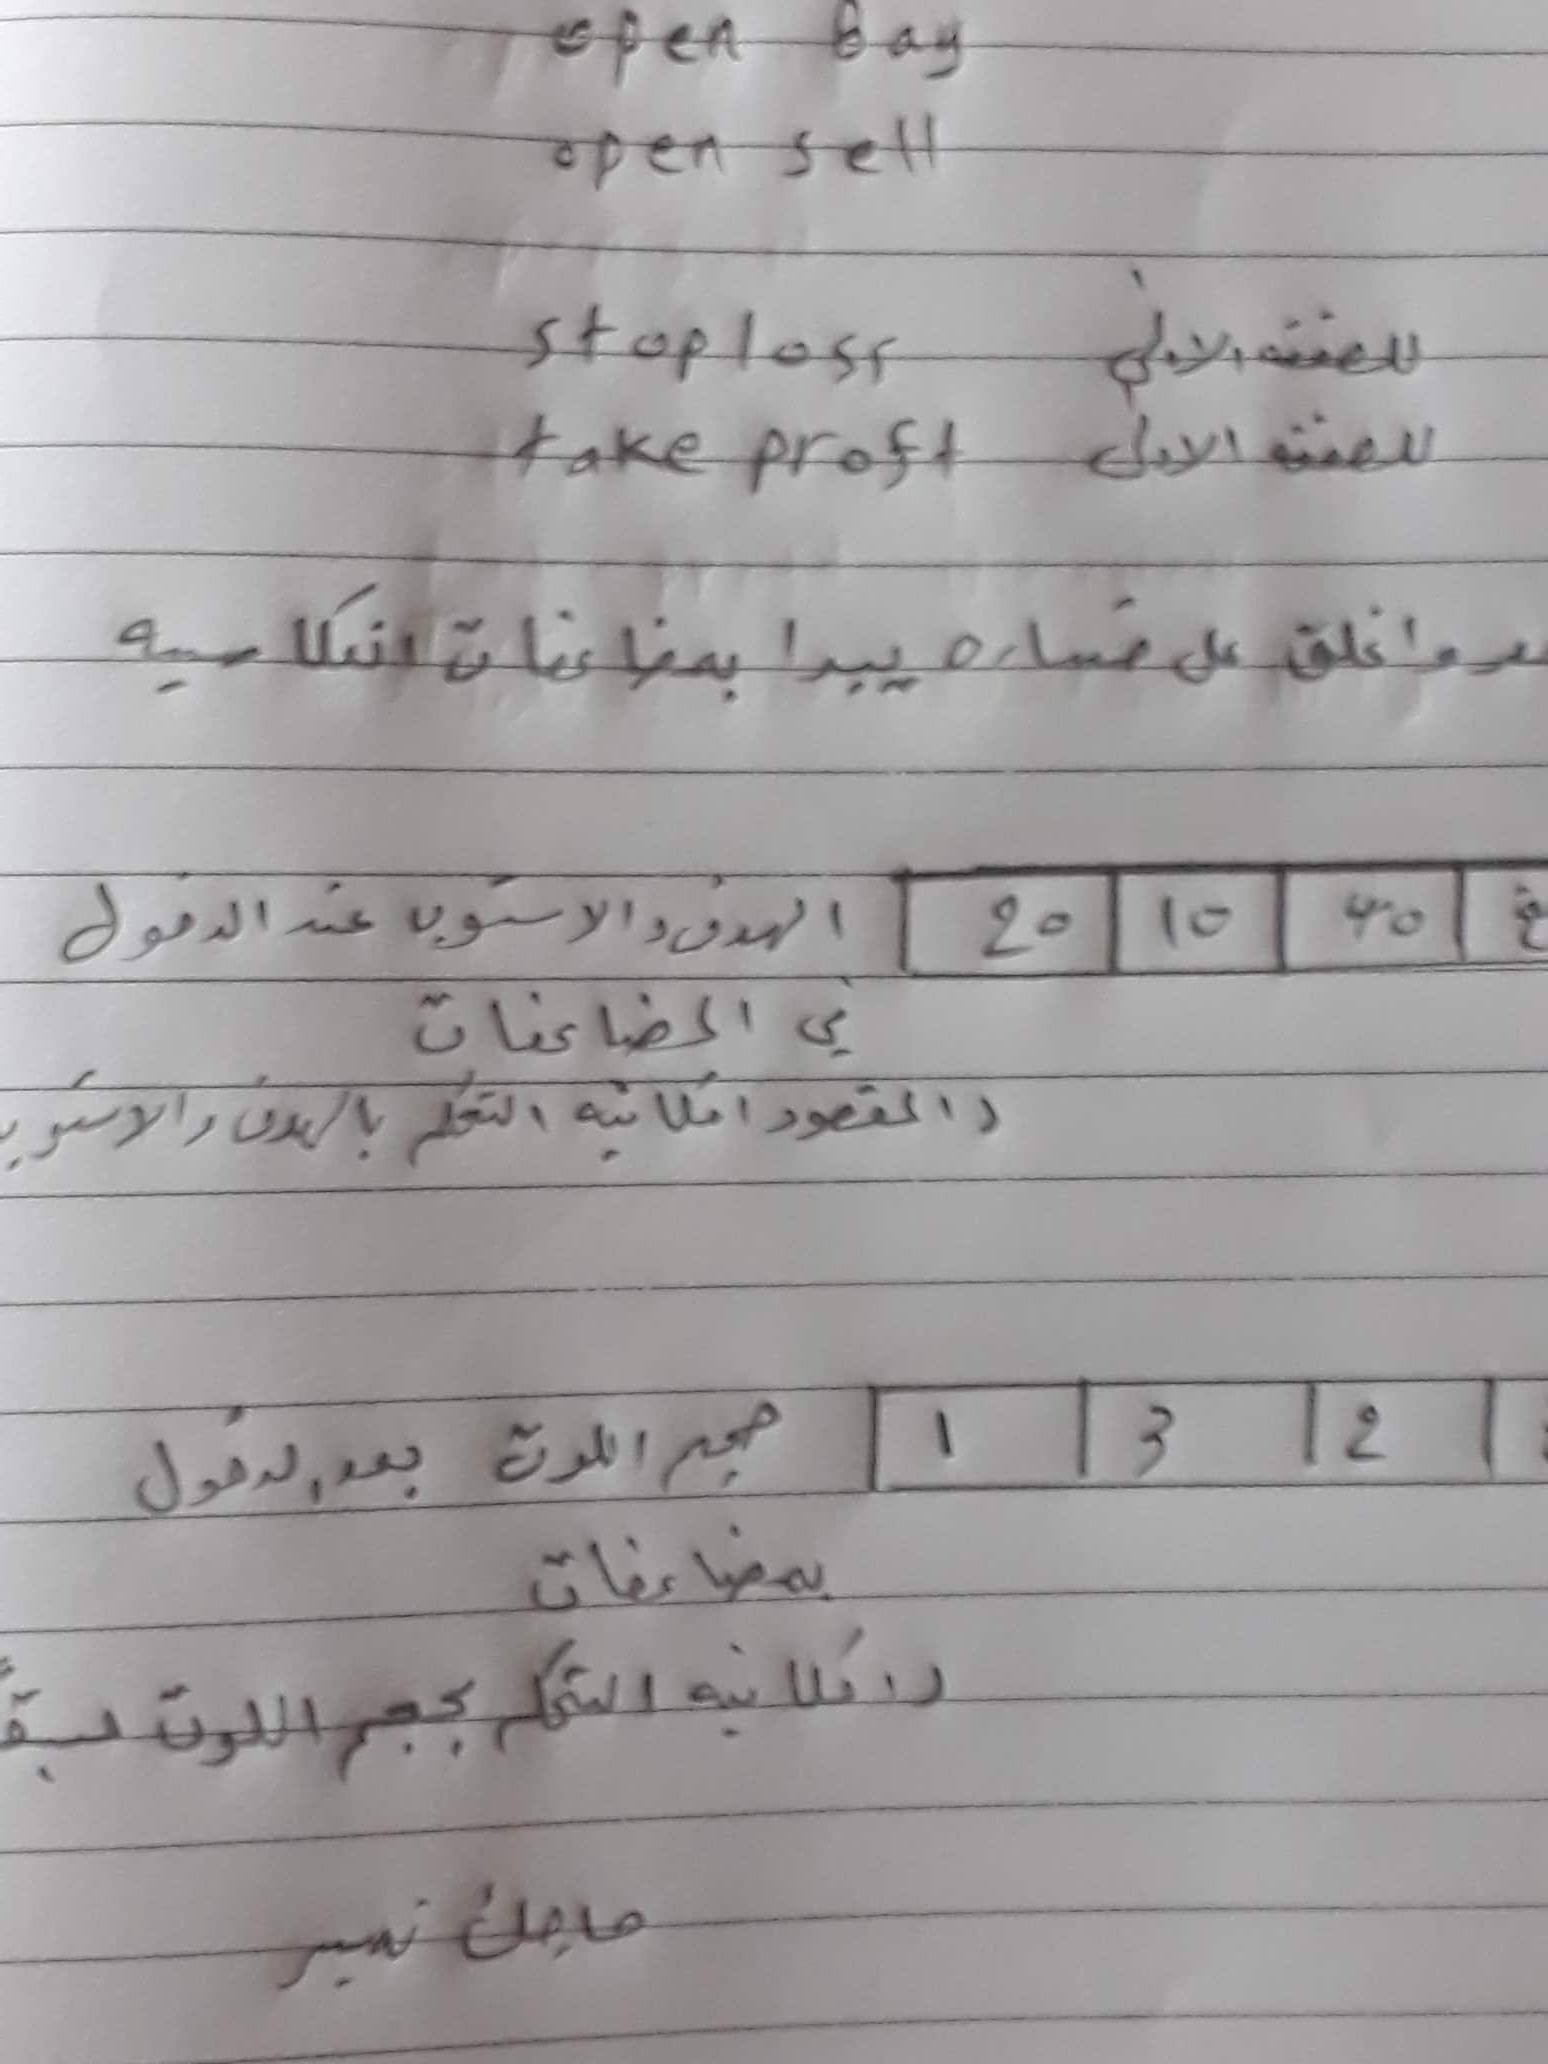 open Bay
open sell
stoploss للصفقه الاولى
take proft للصفقه الاولى
اغلق على خساره يبدا بمضاعفات انعكاسيه
40 10 20 الهدف والاستوب عند الدخول
في المضاعفات
والمقصود امكانيه التحكم بالهدف والاستوب
2 3 1 حجم اللوت بعد الدخول
بمضاعفات
وامكانيه التحكم بحجم اللوت
ماجك نمبر